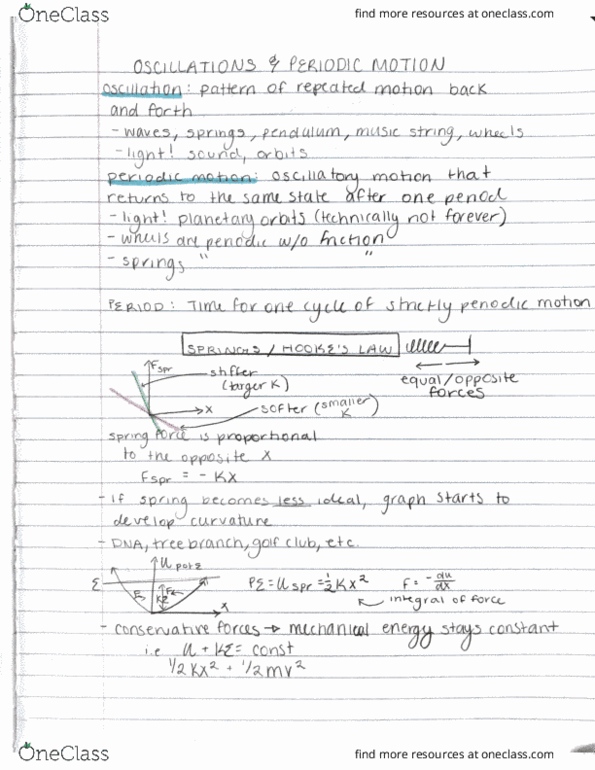 OneClass
find more resources at oneclass.com
OSCILLATIONS & PERIODIC MOTION
oscillation: pattern of repeated motion back
and forth
- waves, springs, pendulum, music string, wheels
- light! sound, orbits
periodic motion: oscillatory motion that
returns to the same state after one period
- light! planetary orbits (technically not forever)
- wheels are periodic w/o friction
- springs " "
PERIOD: Time for one cycle of strictly periodic motion
SPRINGS / HOOKE'S LAW
equal/opposite
forces
Fspr
stiffer
(larger K)
x
softer (smaller K)
spring force is proportional
to the opposite x
Fspr = - Kx
- if spring becomes less ideal, graph starts to
develop curvature
- DNA, tree branch, golf club, etc.
U pot E
E
KE
x
PE = U spr = ½ Kx² F = -du/dx
integral of force
- conservative forces → mechanical energy stays constant
i.e U + KE = const
½ Kx² + ½ mv²
OneClass
find more resources at oneclass.com